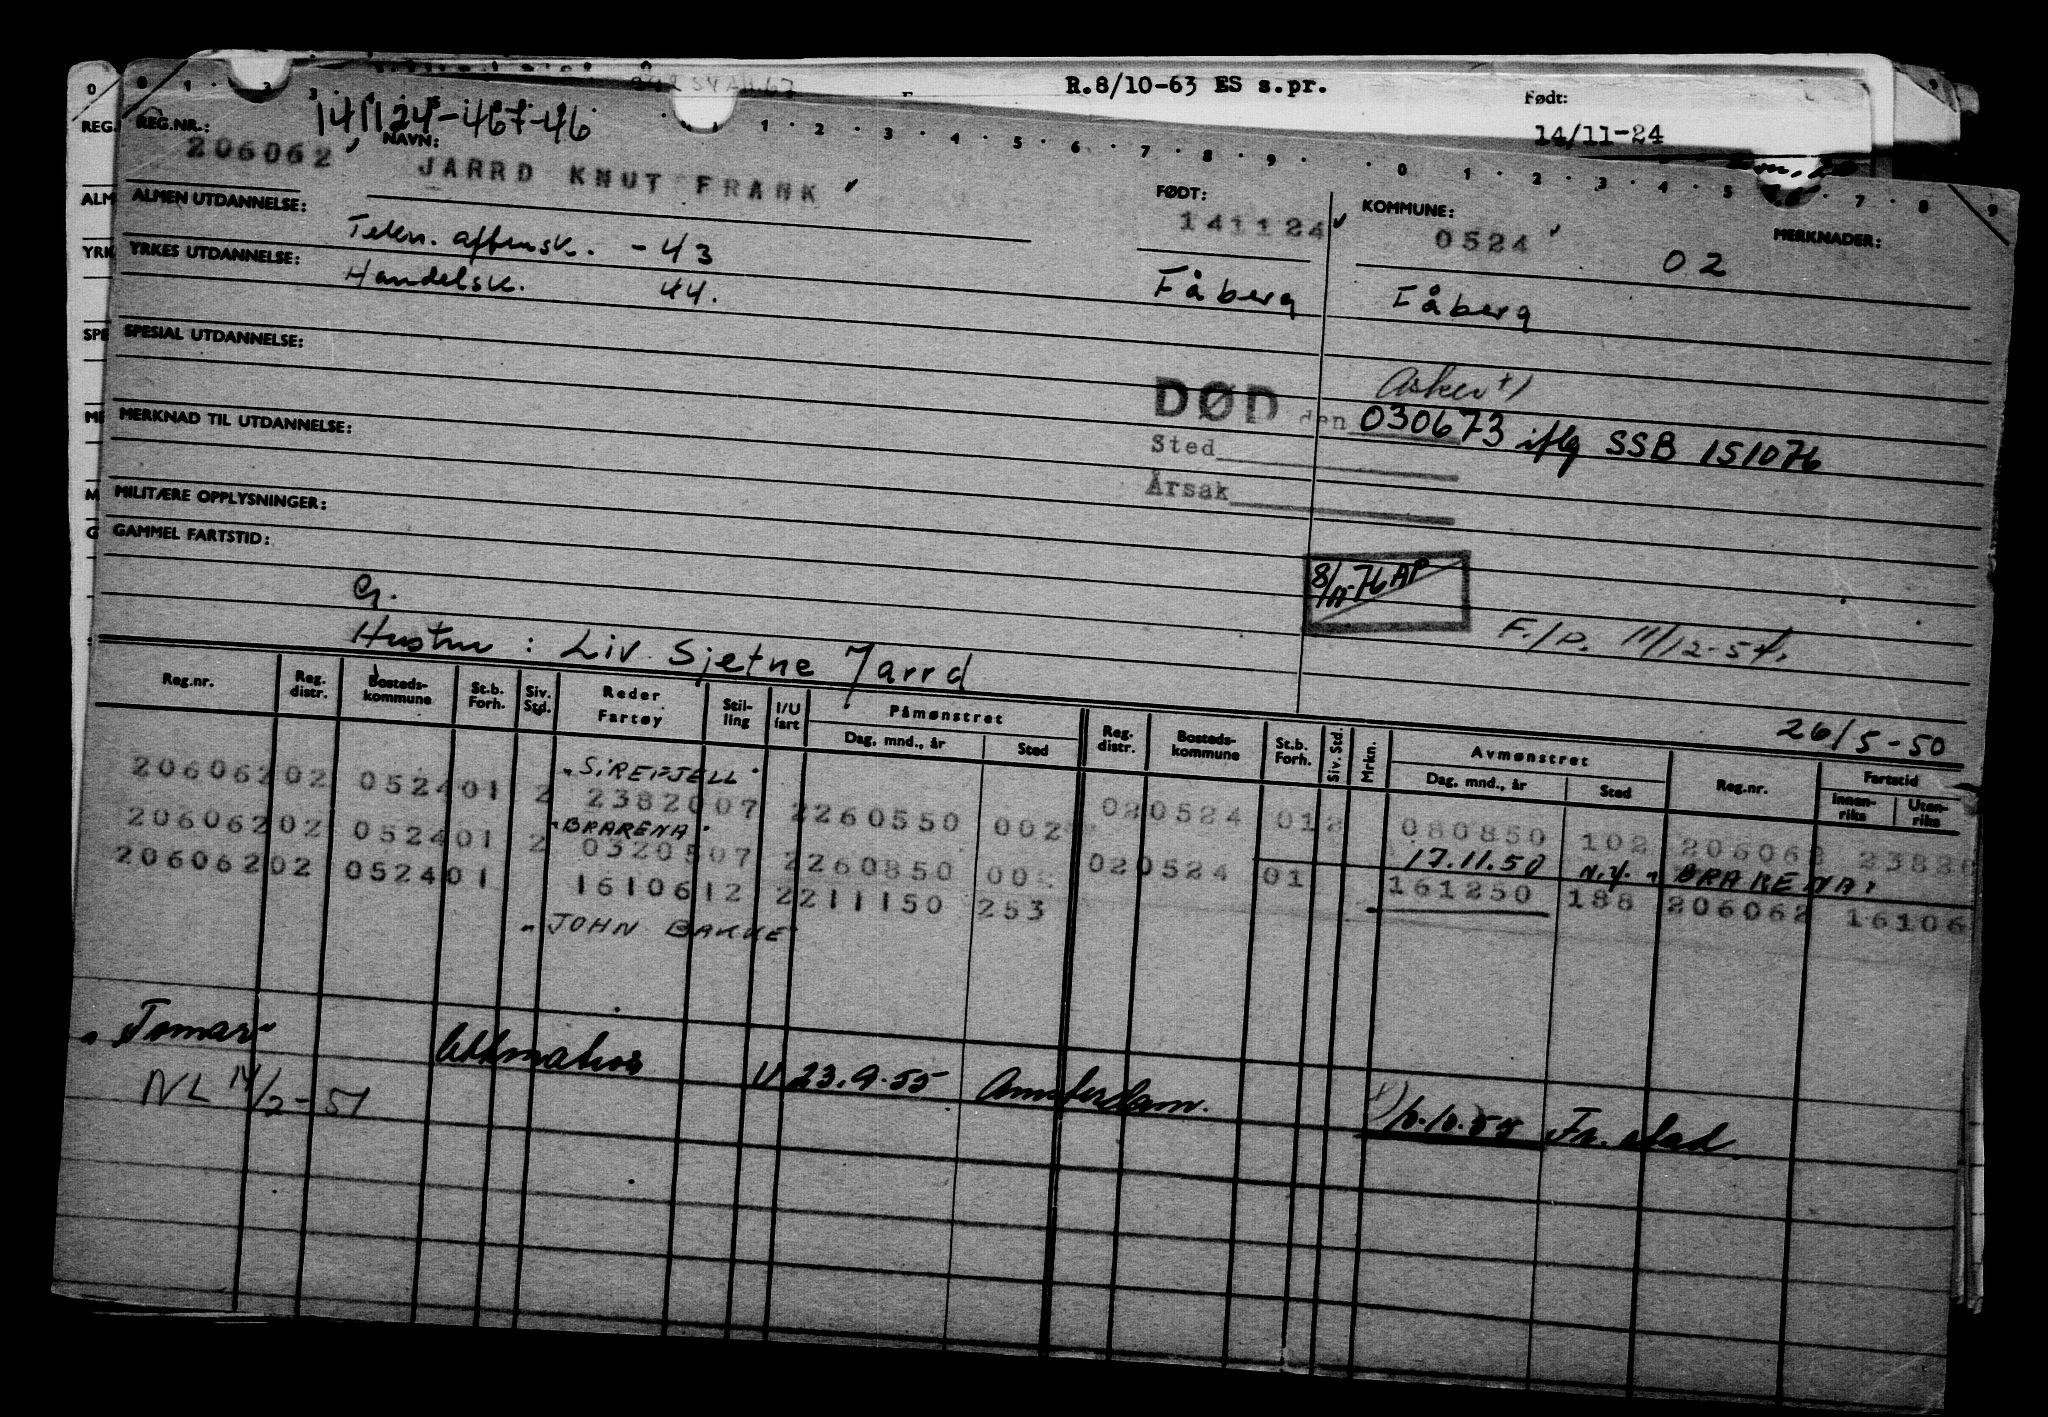 R.8/10-63 ES s.pr.
Født:
14/11-24
0 1 2 3 1 2 3 4 5 6 7 8 9 0 1 2 3 4 5 6 7 8 9
REG.NR.: 141124-467-46
206062 NAVN: JARRD KNUT FRANK FØDT: 141124 KOMMUNE: 0524 02 MERKNADER:
ALMEN UTDANNELSE: Tekn. aftensk. - 43
Fåberg Fåberg
YRKES UTDANNELSE: Handelsk. 44.
SPESIAL UTDANNELSE:
Asker +)
DØD den 030673 iflg SSB 151076
MERKNAD TIL UTDANNELSE:
Sted
Årsak
MILITÆRE OPPLYSNINGER:
GAMMEL FARTSTID:
8/11-76 AP
G.
F./D. 11/12-54.
Hustru : Liv Sjetne Jarrd
26/5-50
Reg.nr. Reg. distr. Bosteds-kommune St.b. Forh. Siv. Std. Reder Fartøy Stil-ling I/U fart Påmønstret Dag, mnd., år Sted Reg. distr. Bosteds-kommune St.b. Forh. Siv. Std. Mrkn. Avmønstret Dag, mnd., år Sted Reg.nr. Fartstid Innen-riks Uten-riks
"SIREFJELL"
206062 02 0524 01 2 2382007 2 260550 002 02 0524 01 2 080850 102 206062 23820
"BRARENA" 17.11.50 N.Y. "BRARENA"
206062 02 0524 01 2 0320507 2 260850 002 02 0524 01 161250 188 206062 16106
206062 02 0524 01 1610612 2 211150 253
"JOHN BAKKE"
"Tomar" U 23.9.55 Amsterdam. +) 10.10.55 Fr.stad.
NL 14/2-51